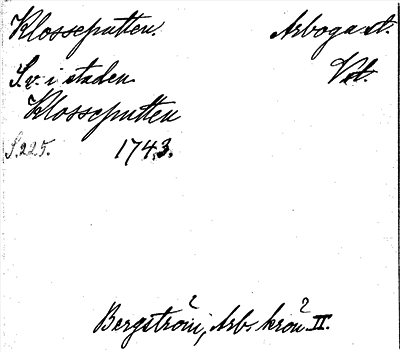 Klosseputten. Arboga st.
Kv. i staden Vst.
Klosseputten
S.225. 1743.
Bergström, Arb. krön. II.